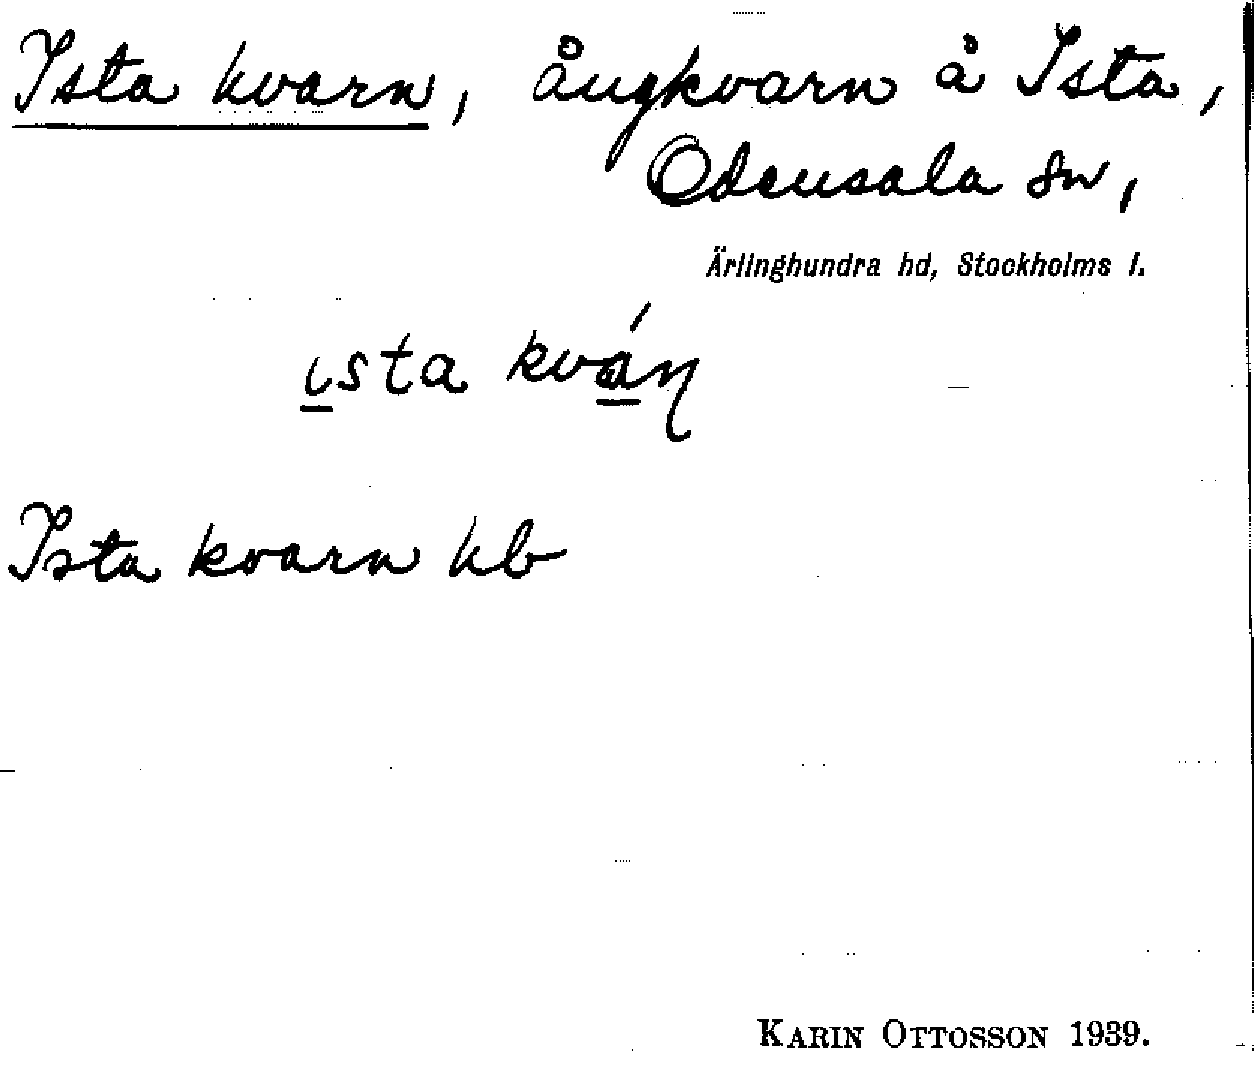 Ista kvarn, ångkvarn å Ista,
Odensala sn,
Ärlinghundra hd, Stockholms l.
ısta kván̨
Ista kvarn hb
KARIN OTTOSSON 1939.